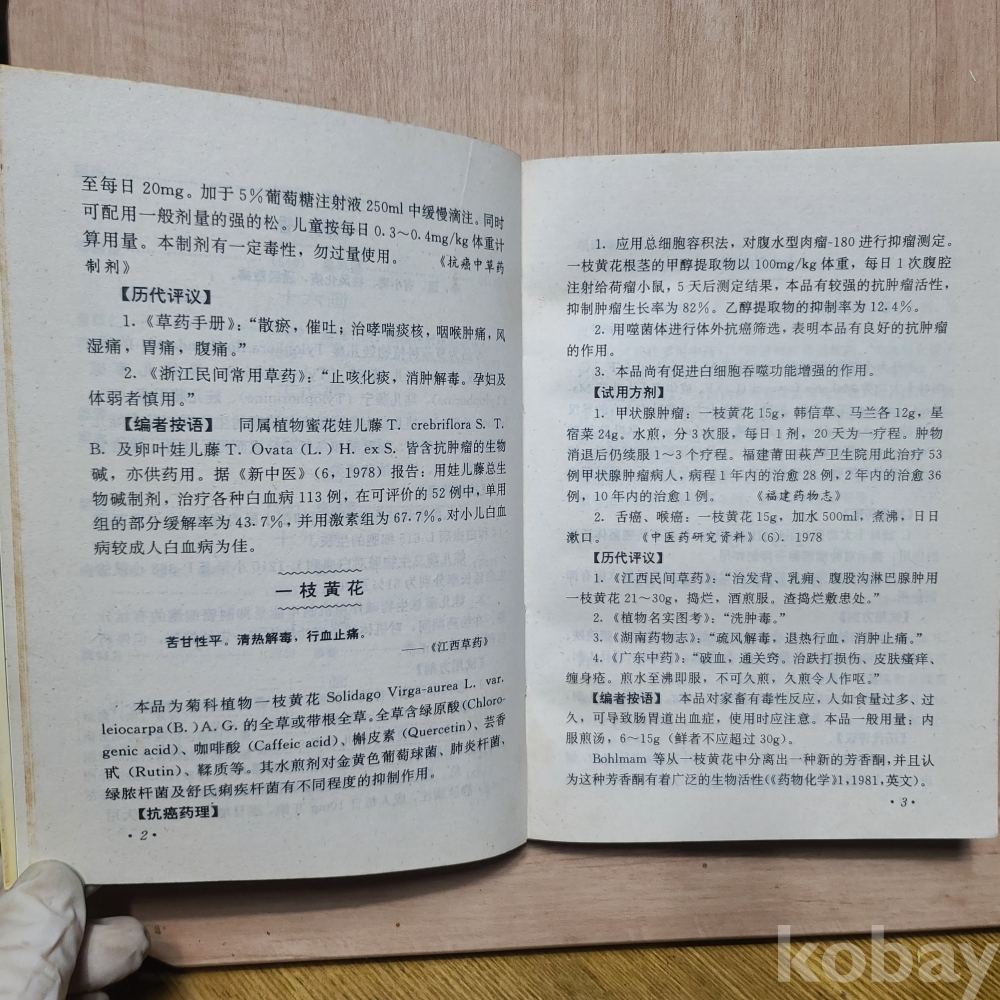 至每日 20mg。加于 5%葡萄糖注射液 250ml 中缓慢滴注。同时
可配用一般剂量的强的松。儿童按每日 0.3～0.4mg/kg 体重计
算用量。本制剂有一定毒性，勿过量使用。 《抗癌中草药
制剂》
【历代评议】
1.《草药手册》：“散瘀，催吐；治哮喘痰核，咽喉肿痛，风
湿痛，胃痛，腹痛。”
2.《浙江民间常用草药》：“止咳化痰，消肿解毒。孕妇及
体弱者慎用。”
【编者按语】 同属植物蜜花娃儿藤 T. crebriflora S. T.
B. 及卵叶娃儿藤 T. Ovata (L.) H. ex S. 皆含抗肿瘤的生物
碱，亦供药用。据《新中医》(6，1978) 报告：用娃儿藤总生
物碱制剂，治疗各种白血病 113 例，在可评价的 52 例中，单用
组的部分缓解率为 43.7%，并用激素组为 67.7%。对小儿白血
病较成人白血病为佳。
一枝黄花
苦甘性平。清热解毒，行血止痛。
——《江西草药》
本品为菊科植物一枝黄花 Solidago Virga-aurea L. var.
leiocarpa (B.) A. G. 的全草或带根全草。全草含绿原酸 (Chloro-
genic acid)、咖啡酸 (Caffeic acid)、槲皮素 (Quercetin)、芸香
甙 (Rutin)、鞣质等。其水煎剂对金黄色葡萄球菌、肺炎杆菌、
绿脓杆菌及舒氏痢疾杆菌有不同程度的抑制作用。
【抗癌药理】
· 2 ·
1. 应用总细胞容积法，对腹水型肉瘤-180 进行抑瘤测定。
一枝黄花根茎的甲醇提取物以 100mg/kg 体重，每日 1 次腹腔
注射给荷瘤小鼠，5 天后测定结果，本品有较强的抗肿瘤活性，
抑制肿瘤生长率为 82%。乙醇提取物的抑制率为 12.4%。
2. 用噬菌体进行体外抗癌筛选，表明本品有良好的抗肿瘤
的作用。
3. 本品尚有促进白细胞吞噬功能增强的作用。
【试用方剂】
1. 甲状腺肿瘤：一枝黄花 15g，韩信草、马兰各 12g，星
宿菜 24g。水煎，分 3 次服，每日 1 剂，20 天为一疗程。肿物
消退后仍续服 1～3 个疗程。福建莆田萩芦卫生院用此治疗 53
例甲状腺肿瘤病人，病程 1 年内的治愈 28 例，2 年内的治愈 36
例，10 年内的治愈 1 例。 《福建药物志》
2. 舌癌、喉癌：一枝黄花 15g，加水 500ml，煮沸，日日
漱口。 《中医药研究资料》(6)．1978
【历代评议】
1.《江西民间草药》：“治发背、乳痈、腹股沟淋巴腺肿用
一枝黄花 21～30g，捣烂，酒煎服。渣捣烂敷患处。”
2.《植物名实图考》：“洗肿毒。”
3.《湖南药物志》：“疏风解毒，退热行血，消肿止痛。”
4.《广东中药》：“破血，通关窍。治跌打损伤、皮肤瘙痒、
缠身疮。煎水至沸即服，不可久煎，久煎令人作呕。”
【编者按语】 本品对家畜有毒性反应，人如食量过多、过
久，可导致肠胃道出血症，使用时应注意。本品一般用量；内
服煎汤，6～15g (鲜者不应超过 30g)。
Bohlmam 等从一枝黄花中分离出一种新的芳香酮，并且认
为这种芳香酮有着广泛的生物活性 (《药物化学》1，1981，英文)。
· 3 ·
kobay